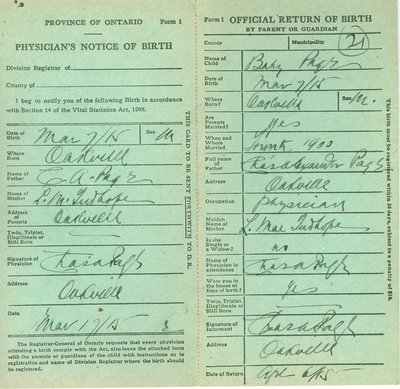 PROVINCE OF ONTARIO Form 1
PHYSICIAN'S NOTICE OF BIRTH
Division Registrar of
County of
I beg to notify you of the following Birth in accordance
with Section 14 of the Vital Statistics Act, 1908.
Date of Birth Mar 7/15 Sex M.
Where Born Oakville
Name of Father C. A. Page
Name of Mother L. M. Tudhope
Address of Parents Oakville
Twin, Triplet, Illegitimate or Still Born
Signature of Physician Chas A Page
Address Oakville
Date Mar 17/15
The Registrar-General of Ontario requests that every physician
attending a birth comply with the Act, also leave the attached form
with the parents or guardians of the child with instructions as to
registration and name of Division Registrar where the birth should
be registered.
THIS CARD TO BE SENT FORTHWITH TO D.R.
Form 1 OFFICIAL RETURN OF BIRTH
BY PARENT OR GUARDIAN
County Municipality 21
Name of Child Baby Page
Date of Birth Mar 7/15
Where Born? Oakville Sex M.
Are Parents Married? Yes
When and Where Married 1900
Full name of Father Chas Alexander Page
Address Oakville
Occupation Physician
Maiden Name of Mother L. Mae Tudhope
Is she Single or a Widow? no
Name of Physician in attendance Chas A Page
Were you in the house at time of birth? Yes
Twin, Triplet, Illegitimate or Still Born
Signature of Informant Chas A Page
Address Oakville
Date of Return
This birth must be registered within 30 days, subject to a penalty of $10